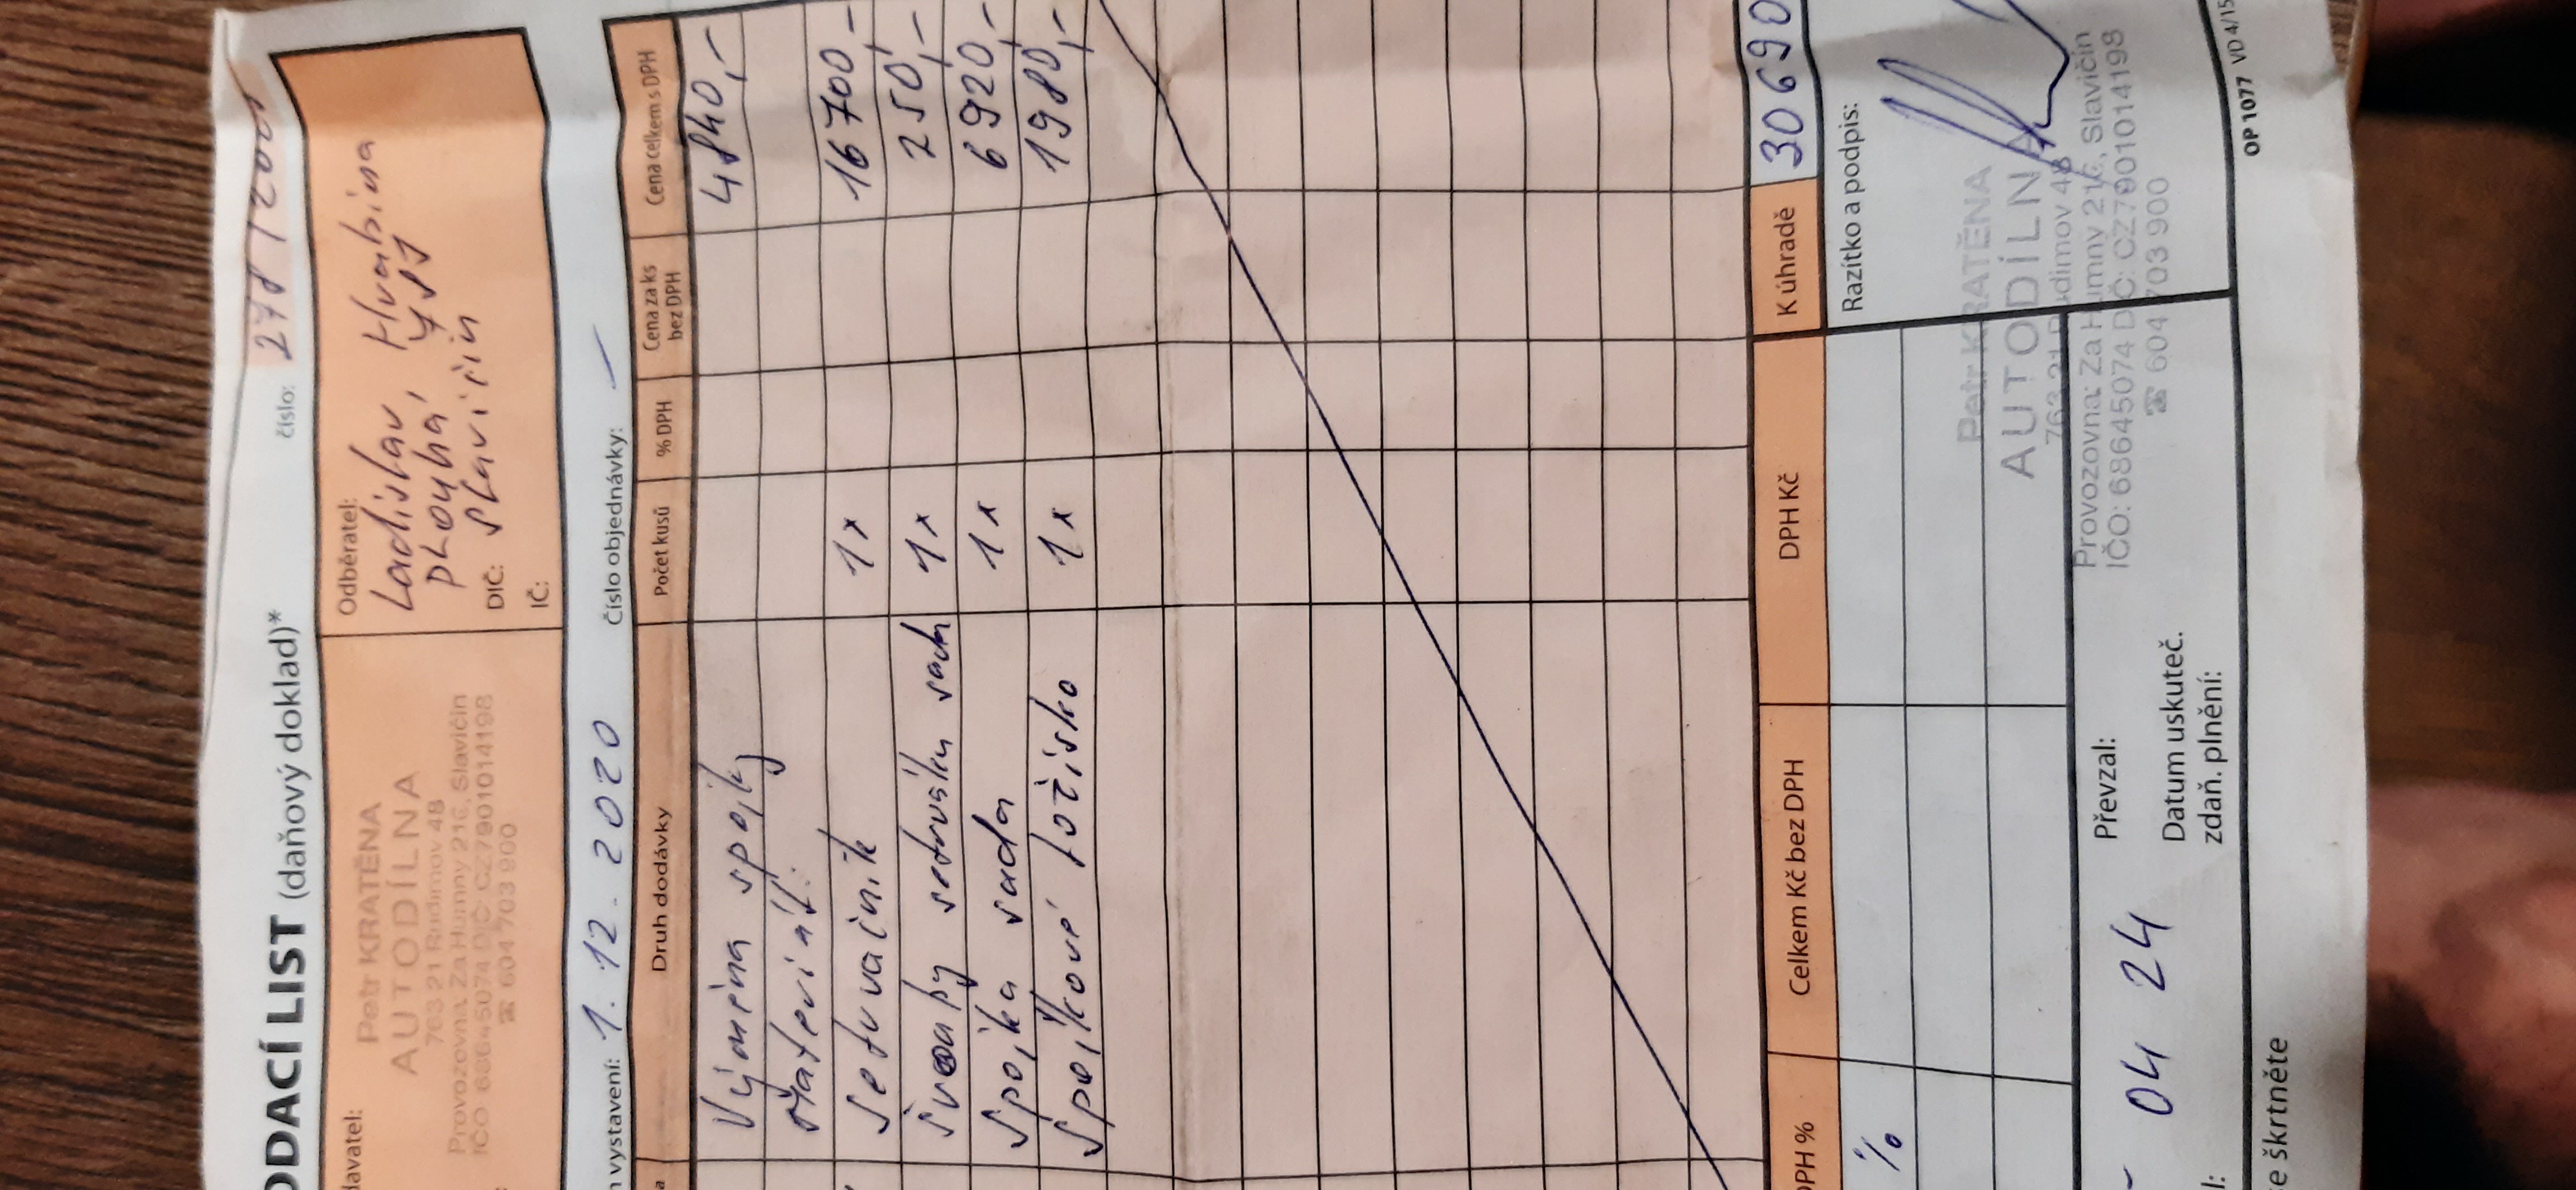 ODACÍ LIST (daňový doklad)* číslo: 278 / 2001
davatel:
Petr KRATĚNA
AUTODÍLNA
763 21 Rudimov 48
Provozovna: Za Humny 216, Slavičín
IČO: 68645074 DIČ: CZ7901014198
☎ 604 703 900
Odběratel:
Ladislav Hrabina
Dlouhá,
DIČ: Slavičín
IČ:
vystavení: 1. 12. 2020 číslo objednávky: –
Druh dodávky Počet kusů % DPH Cena za ks bez DPH Cena celkem s DPH
Výměna spojky 4840,-
Materiál:
Setrvačník 1x 16700,-
Šrouby setrvačníku sada 1x 250,-
Spojka sada 1x 6920,-
Spojkové ložisko 1x 1980,-
DPH % Celkem Kč bez DPH DPH Kč K úhradě 30690
%
Razítko a podpis:
Petr KRATĚNA
AUTODÍLNA
763 21 Rudimov 48
Provozovna: Za Humny 216, Slavičín
IČO: 68645074 DIČ: CZ7901014198
☎ 604 703 900
Převzal:
04 24
Datum uskuteč.
zdaň. plnění:
e škrtněte
OP 1077 VD 4/15